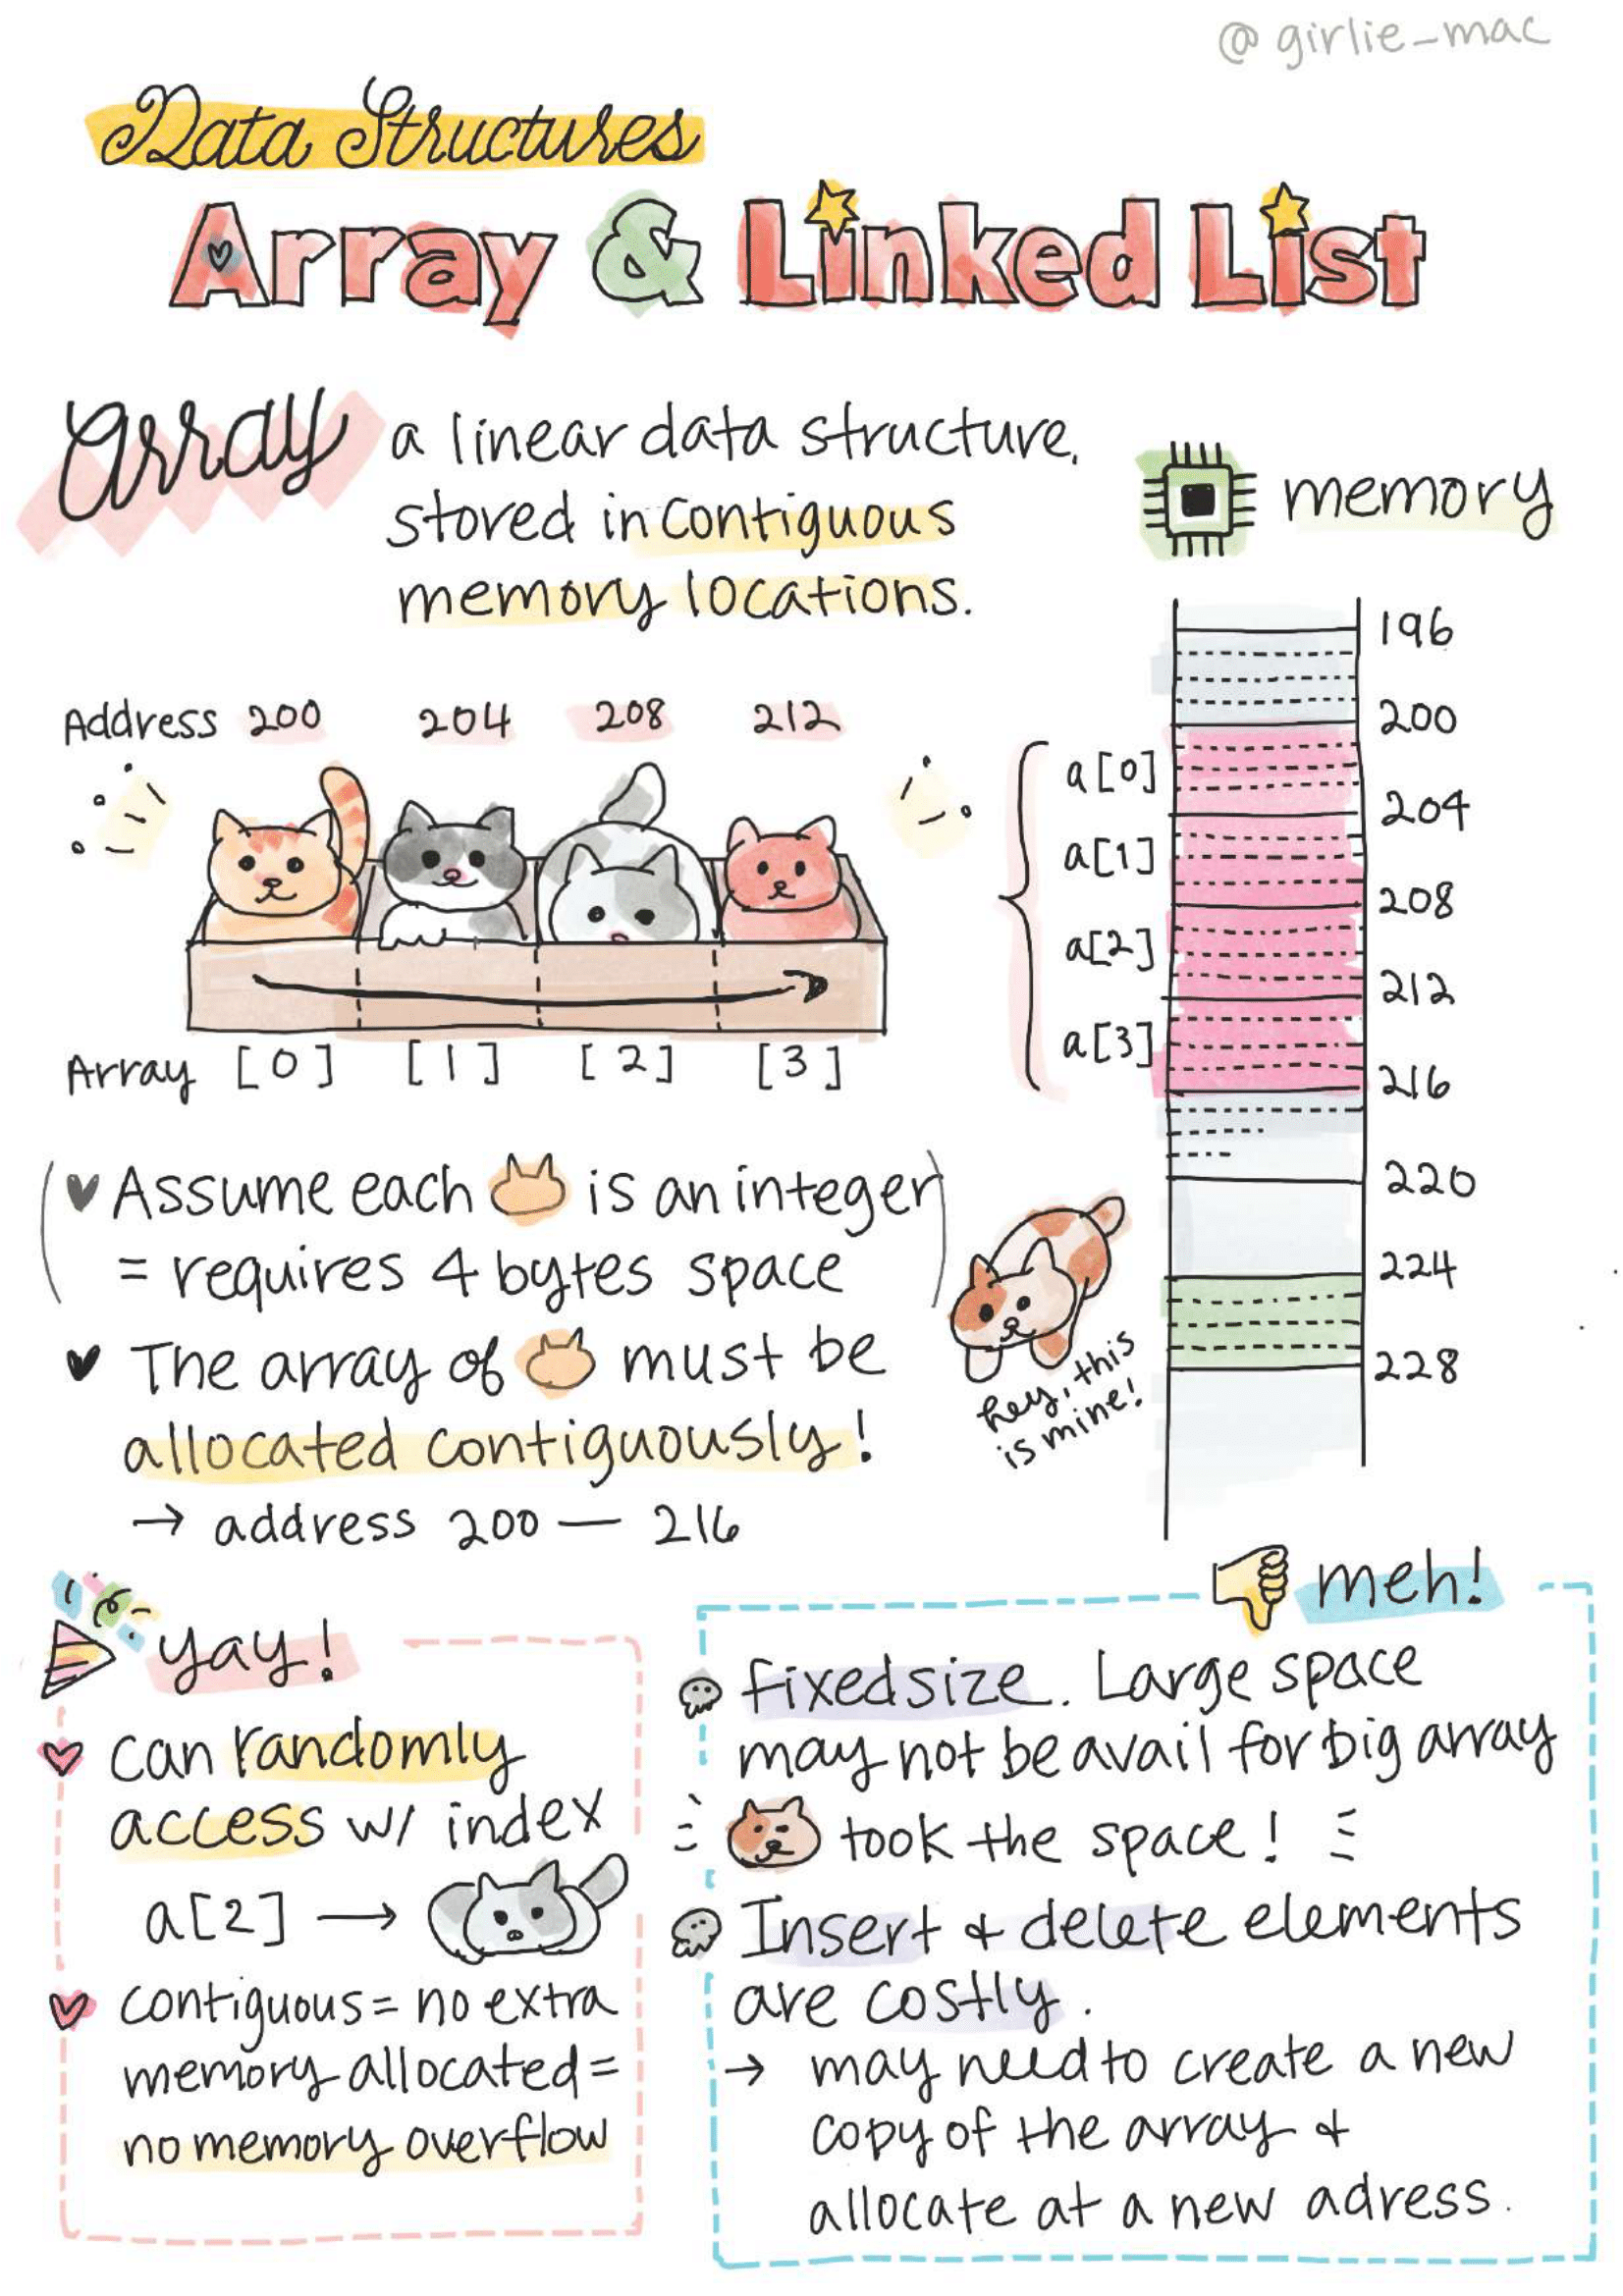 @girlie_mac
Data Structures
Array & Linked List
array
a linear data structure,
stored in contiguous
memory locations.
memory
Address 200 204 208 212
Array [0] [1] [2] [3]
196
200
a[0]
204
a[1]
208
a[2]
212
a[3]
216
220
224
228
Assume each is an integer
= requires 4 bytes space
The array of must be
allocated contiguously!
→ address 200 — 216
hey, this
is mine!
yay!
can randomly
access w/ index
a[2] →
contiguous = no extra
memory allocated =
no memory overflow
meh!
fixed size. Large space
may not be avail for big array
took the space!
Insert & delete elements
are costly.
→ may need to create a new
copy of the array &
allocate at a new adress.